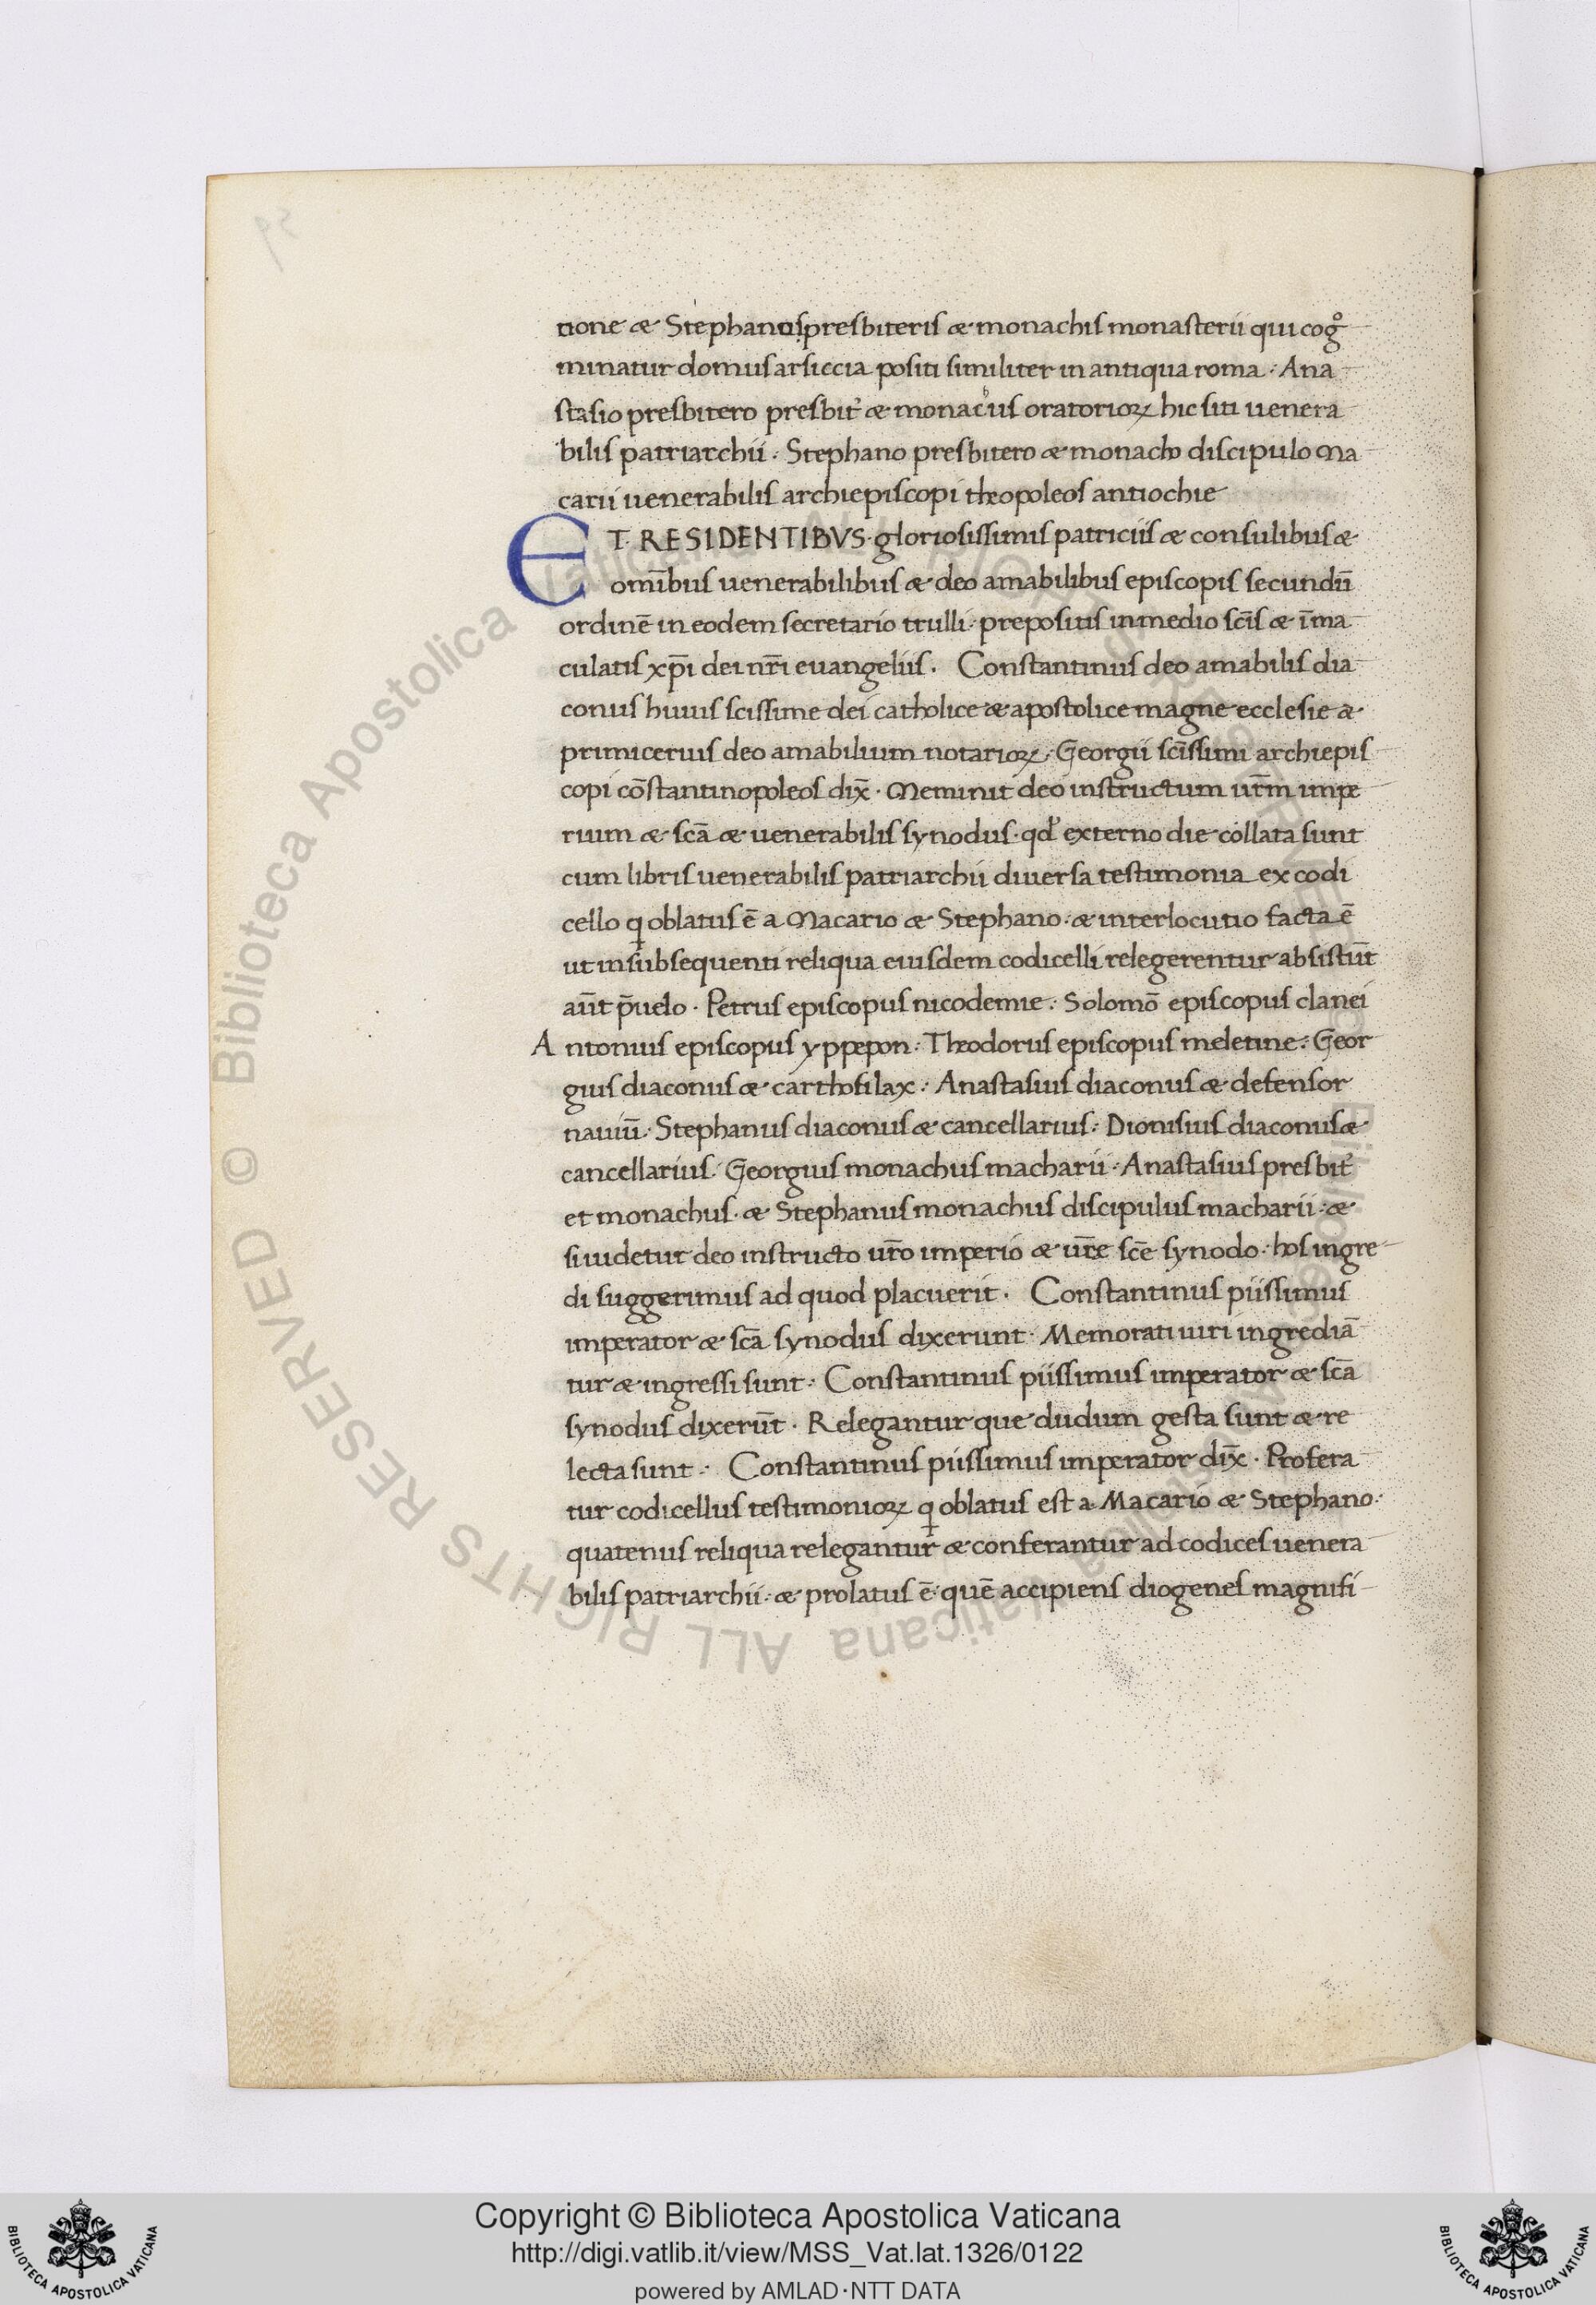 tione & Stephanus presbiteris & monachis monasterii qui cog̊
minatur domus arsiccia positi similiter in antiqua roma · Ana
stasio presbitero presbit̉ & monachus oratorioꝝ hic siti uenera
bilis patriarchii · Stephano presbitero & monacho discipulo Ma
carii uenerabilis archiepiscopi theopoleos antiochie
ET RESIDENTIBVS · gloriosissimis patriciis & consulibus &
om̄ibus uenerabilibus & deo amabilibus episcopis secundū
ordinē in eodem secretario trulli · prepositis in medio sc̄is & īma
culatis xp̄i dei nr̄i euangeliis · Constantinus deo amabilis dia
conus huius scissime dei catholice & apostolice magne ecclesie &
primicerius deo amabilium notarioꝝ · Georgii sc̄issimi archiepis
copi cōstantinopoleos dix̄ · Meminit deo instructum ur̄m impe
rium & sc̄a & uenerabilis synodus · qd̉ externo die collata sunt
cum libris uenerabilis patriarchii diuersa testimonia ex codi
cello q oblatus ē a Macario & Stephano · & interlocutio facta ē
ut in subsequenti reliqua eiusdem codicelli relegerentur absistūt
aūt p̄uelo · Petrus episcopus nicodemie · Solomō episcopus clanei
Antonius episcopus yppepon · Theodorus episcopus meletine · Geor
gius diaconus & carthofilax · Anastasius diaconus & defensor
nauiū · Stephanus diaconus & cancellarius · Dionisius diaconus &
cancellarius · Georgius monachus macharii · Anastasius presbit̉
et monachus · & Stephanus monachus discipulus macharii · &
si uidetur deo instructo ur̄o imperio & ur̄e sc̄e synodo · hos ingre
di suggerimus ad quod placuerit · Constantinus piissimus
imperator & sc̄a synodus dixerunt · Memorati uiri ingrediā
tur & ingressi sunt · Constantinus piissimus imperator & sc̄a
synodus dixerūt · Relegantur que dudum gesta sunt & re
lecta sunt · Constantinus piissimus imperator dix̄ · Profera
tur codicellus testimonioꝝ q oblatus est a Macario & Stephano ·
quatenus reliqua relegantur & conferantur ad codices uenera
bilis patriarchii · & prolatus ē · quē accipiens diogenes magnifi
Copyright © Biblioteca Apostolica Vaticana
http://digi.vatlib.it/view/MSS_Vat.lat.1326/0122
powered by AMLAD·NTT DATA
BIBLIOTECA APOSTOLICA VATICANA
BIBLIOTECA APOSTOLICA VATICANA
© Biblioteca Apostolica Vaticana ALL RIGHTS RESERVED